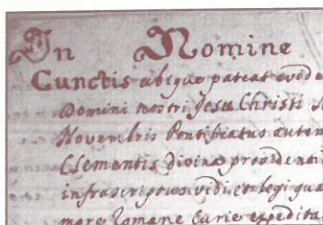 In Nomine
Cunctis ubique pateat evid
Domini nostri Jesu Christi
Novembris Pontificatus autem
Clementis divina providenti
infrascriptus vidi et legi qua
more Romane Curie expedita